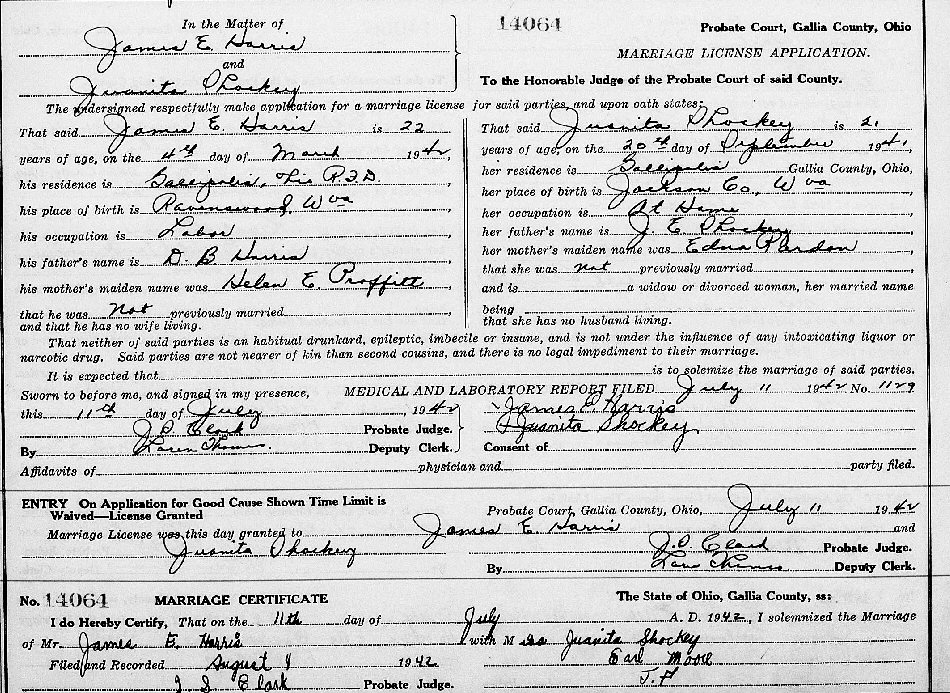 In the Matter of
James E. Harris
and
Juanita Shockey
14064 Probate Court, Gallia County, Ohio
MARRIAGE LICENSE APPLICATION.
To the Honorable Judge of the Probate Court of said County.
The undersigned respectfully make application for a marriage license for said parties, and upon oath states:
That said James E. Harris is 22
years of age, on the 4th day of March 1942,
his residence is Gallipolis, R.F.D.,
his place of birth is Ravenswood, W va,
his occupation is Labor,
his father's name is D. B Harris,
his mother's maiden name was Helen E Proffitt,
that he was not previously married
and that he has no wife living.
That said Juanita Shockey is 2
years of age, on the 20th day of September 194
her residence is Gallipolis Gallia County, Ohio,
her place of birth is Jackson Co, W va
her occupation is At Home
her father's name is J. E Shockey
her mother's maiden name was Edna Rardon
that she was not previously married,
and is a widow or divorced woman, her married name
being
that she has no husband living.
That neither of said parties is an habitual drunkard, epileptic, imbecile or insane, and is not under the influence of any intoxicating liquor or
narcotic drug. Said parties are not nearer of kin than second cousins, and there is no legal impediment to their marriage.
It is expected that is to solemnize the marriage of said parties.
Sworn to before me, and signed in my presence,
this 11th day of July, 1942
J. S. Clark Probate Judge.
By Deputy Clerk.
MEDICAL AND LABORATORY REPORT FILED July 11 1942 No. 1129
James E. Harris
Juanita Shockey
Consent of
Affidavits of physician and party filed.
ENTRY On Application for Good Cause Shown Time Limit is
Waived—License Granted
Probate Court, Gallia County, Ohio, July 11 1942
Marriage License was this day granted to James E Harris and
Juanita Shockey
J. S. Clark Probate Judge.
By Deputy Clerk.
No. 14064 MARRIAGE CERTIFICATE The State of Ohio, Gallia County, ss:
I do Hereby Certify, That on the 11th day of July A. D. 1942, I solemnized the Marriage
of Mr. James E. Harris with Miss Juanita Shockey
Filed and Recorded August 1 1942 Earl Moore
J. S. Clark Probate Judge. J. P.